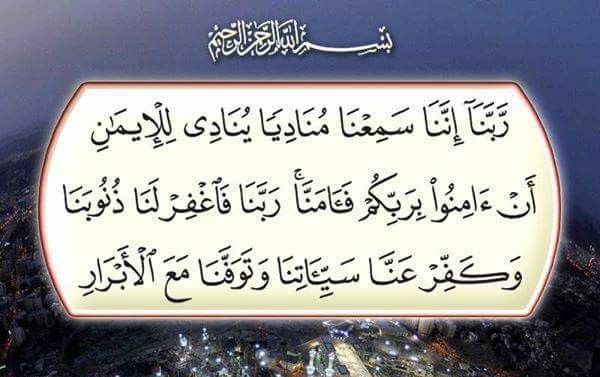 بِسْمِ اللَّهِ الرَّحْمَٰنِ الرَّحِيمِ
رَّبَّنَآ إِنَّنَا سَمِعْنَا مُنَادِيًا يُنَادِى لِلْإِيمَٰنِ
أَنْ ءَامِنُوا۟ بِرَبِّكُمْ فَـَٔامَنَّا ۚ رَبَّنَا فَٱغْفِرْ لَنَا ذُنُوبَنَا
وَكَفِّرْ عَنَّا سَيِّـَٔاتِنَا وَتَوَفَّنَا مَعَ ٱلْأَبْرَارِ